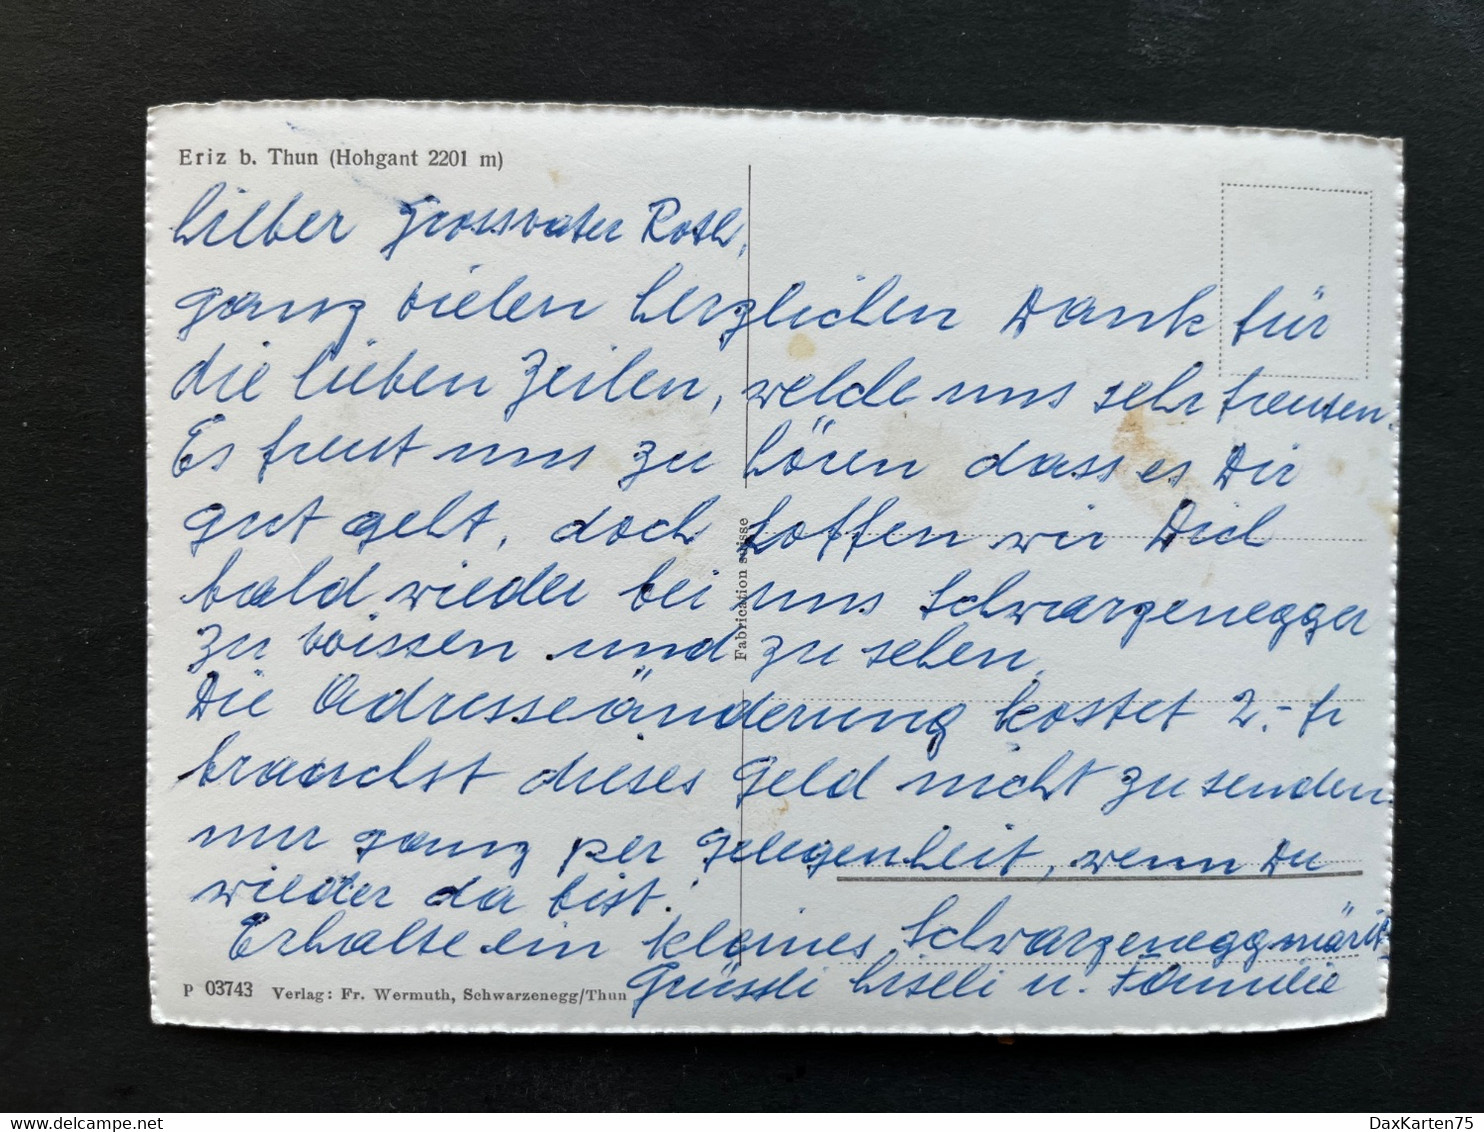 Eriz b. Thun (Hohgant 2201 m)
Lieber Grossvater Roth,
ganz vielen herzlichen Dank für
die lieben Zeilen, welche uns sehr freuten.
Es freut uns zu hören dass es Dir
gut geht, doch hoffen wir Dich
bald wieder bei uns Schwarzenegger
zu wissen und zu sehen.
Die Adresseänderung kostet 2.- fr
brauchst dieses Geld nicht zu senden
nur ganz per Gelegenheit, wenn Du
wieder da bist.
Erhalte ein kleines Schwarzeneggmärit-
Grüssli Liseli u. Familie
Fabrication suisse
P 03743 Verlag: Fr. Wermuth, Schwarzenegg/Thun
DaxKarten75